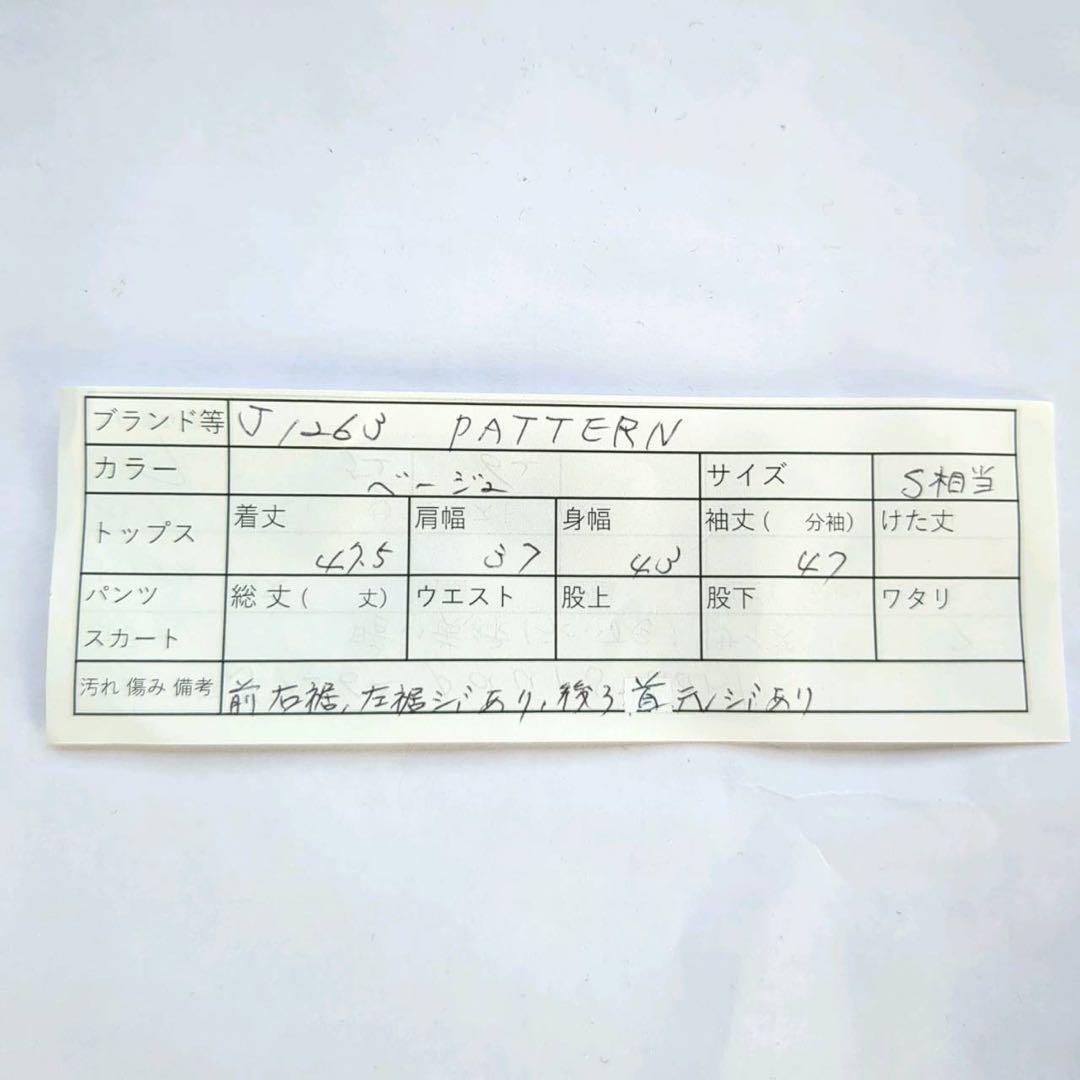 ブランド等 J1263 PATTERN
カラー ベージュ サイズ S相当
トップス 着丈 47.5 肩幅 37 身幅 43 袖丈( 分袖) 47 けた丈
パンツ 総丈( 丈) ウエスト 股上 股下 ワタリ
スカート
汚れ 傷み 備考 前右裾、左裾シミあり、後ろ首元シミあり